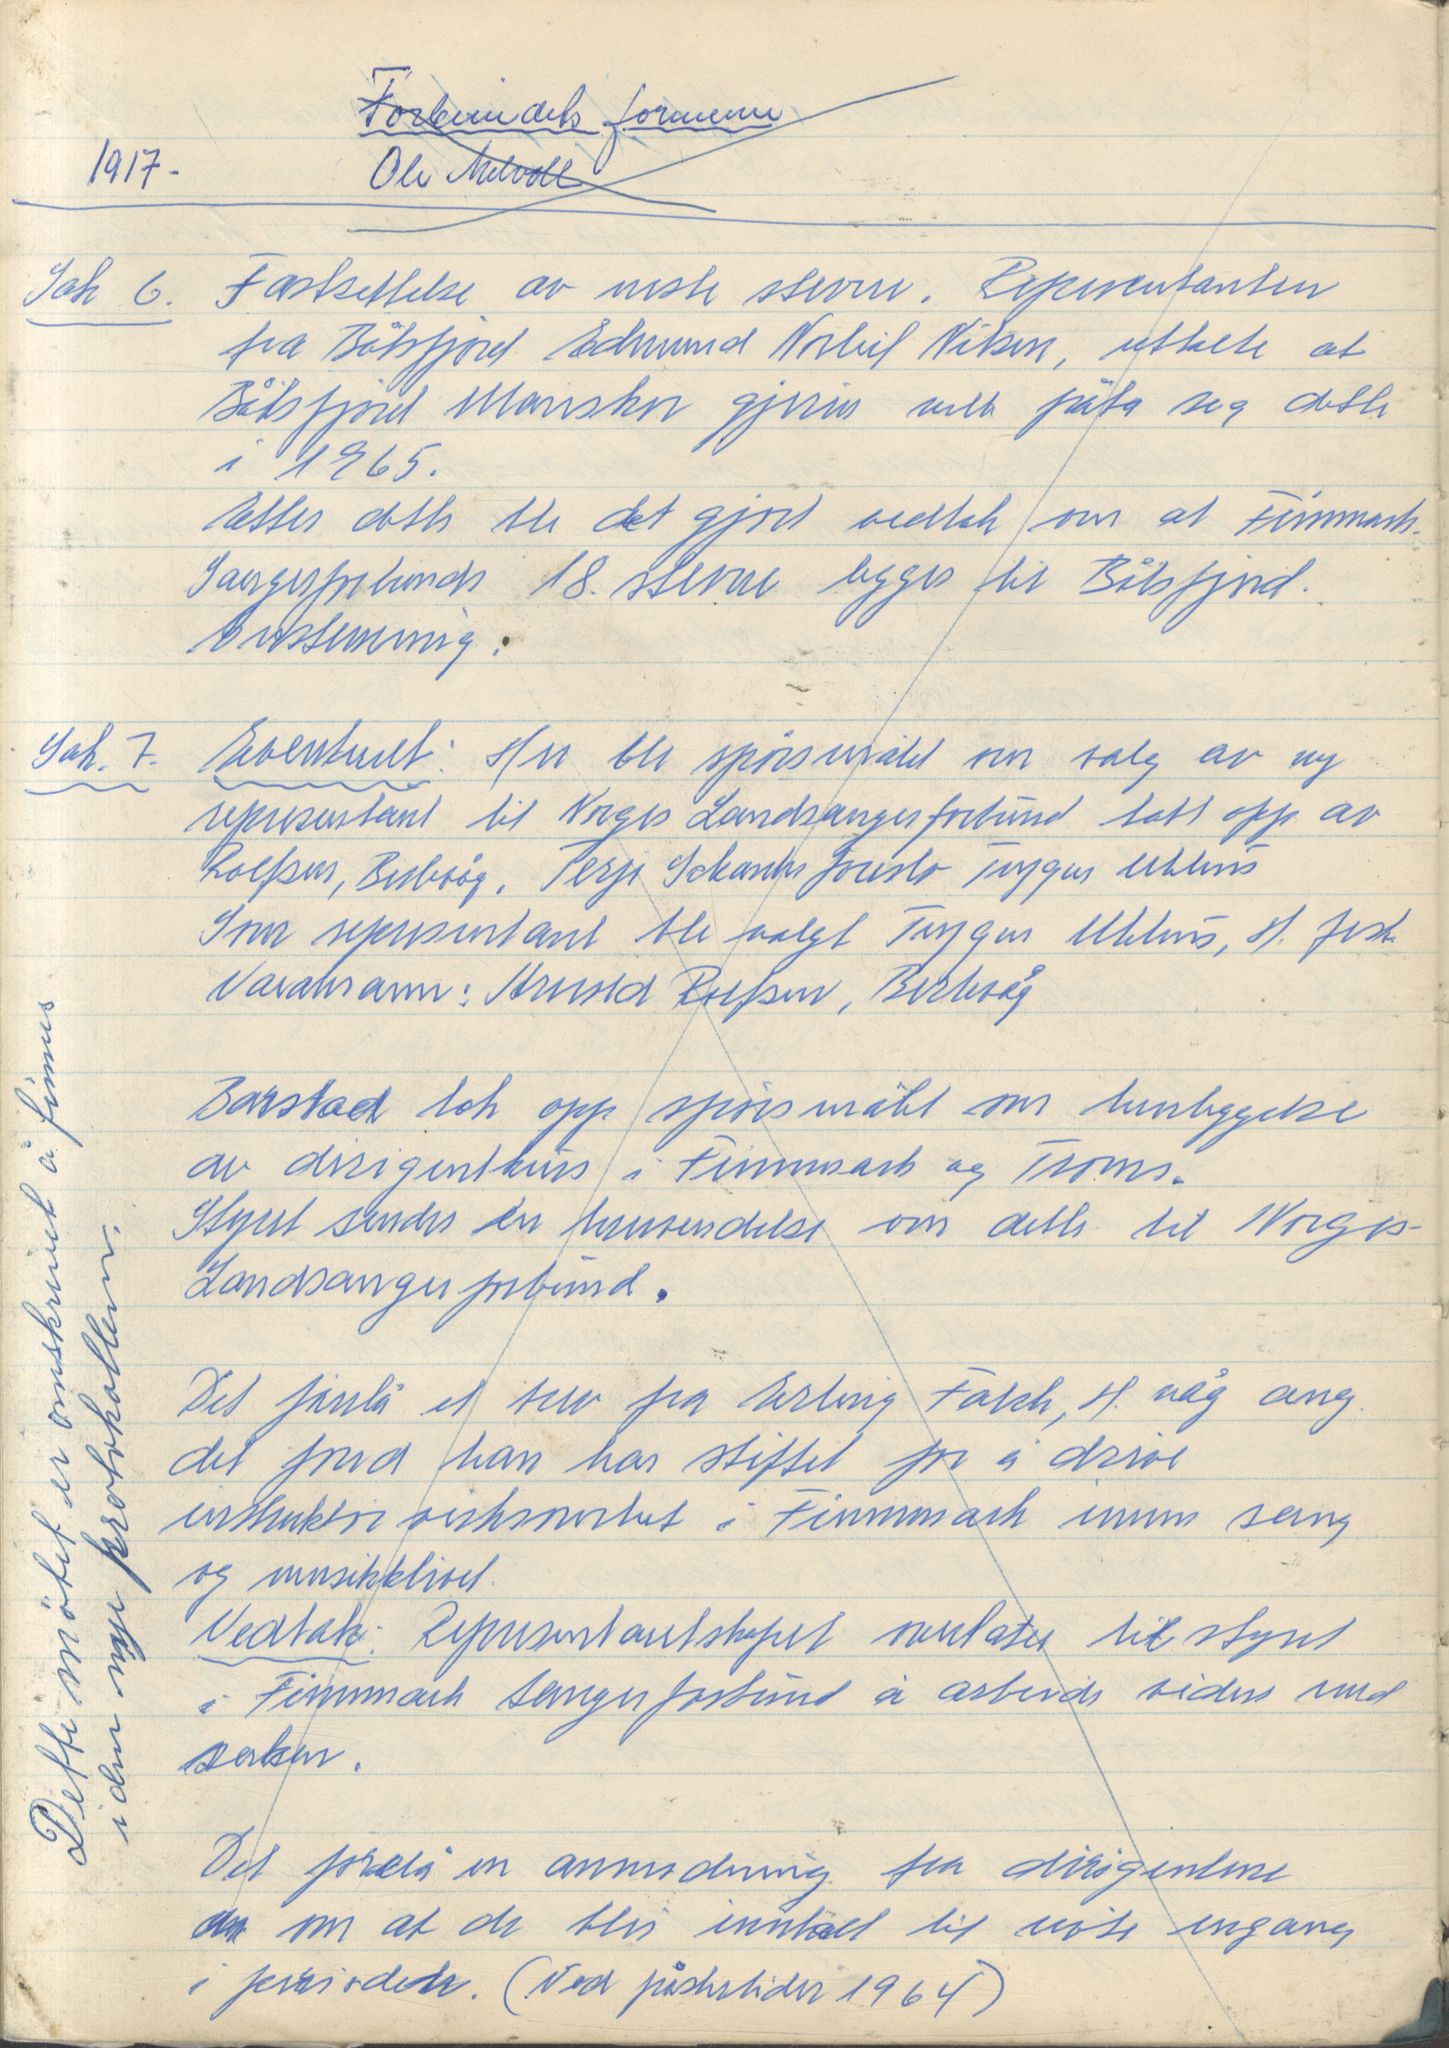 Forbundets formenn
1917- Ole Melvoll
Sak 6. Fastsettelse av neste stevne. Representanten
fra Båtsfjord Edmund Nilsen, uttalte at
Båtsfjord Mannskor gjerne ville påta seg dette
i 1965.
Etter dette ble det gjort vedtak om at Finnmark
Sangerforbunds 18. stevne legges til Båtsfjord.
Enstemmig.
Sak. 7. Eventuelt: Her ble spørsmålet om valg av ny
representant til Norges Landsangerforbund tatt opp av
Rolfsen, Berlevåg. Terje foreslo Trygve
Som representant ble valgt Trygve H. fest.
Varamann: Arnold Rolfsen, Berlevåg
Barstad tok opp spörsmålet om henleggelse
av dirigentkurs i Finnmark og Troms.
Styret sender en henvendelse om dette til Norges-
Landsangerforbund.
Det forelå et brev fra Erling Fakk, H. våg ang.
det fond han har stiftet for å drive
instruktörvirksomhet i Finnmark innen sang
og musikklivet.
Vedtak: Representantskapet overlater til styret
i Finnmark Sangerforbund å arbeide videre med
saken.
Det forelå en anmodning fra dirigentene
om at de blir innkalt til möte engang
i perioden. (Ved påsketider 1964)
Dette mötet er omskrevet å finnes
i den nye protokollen.